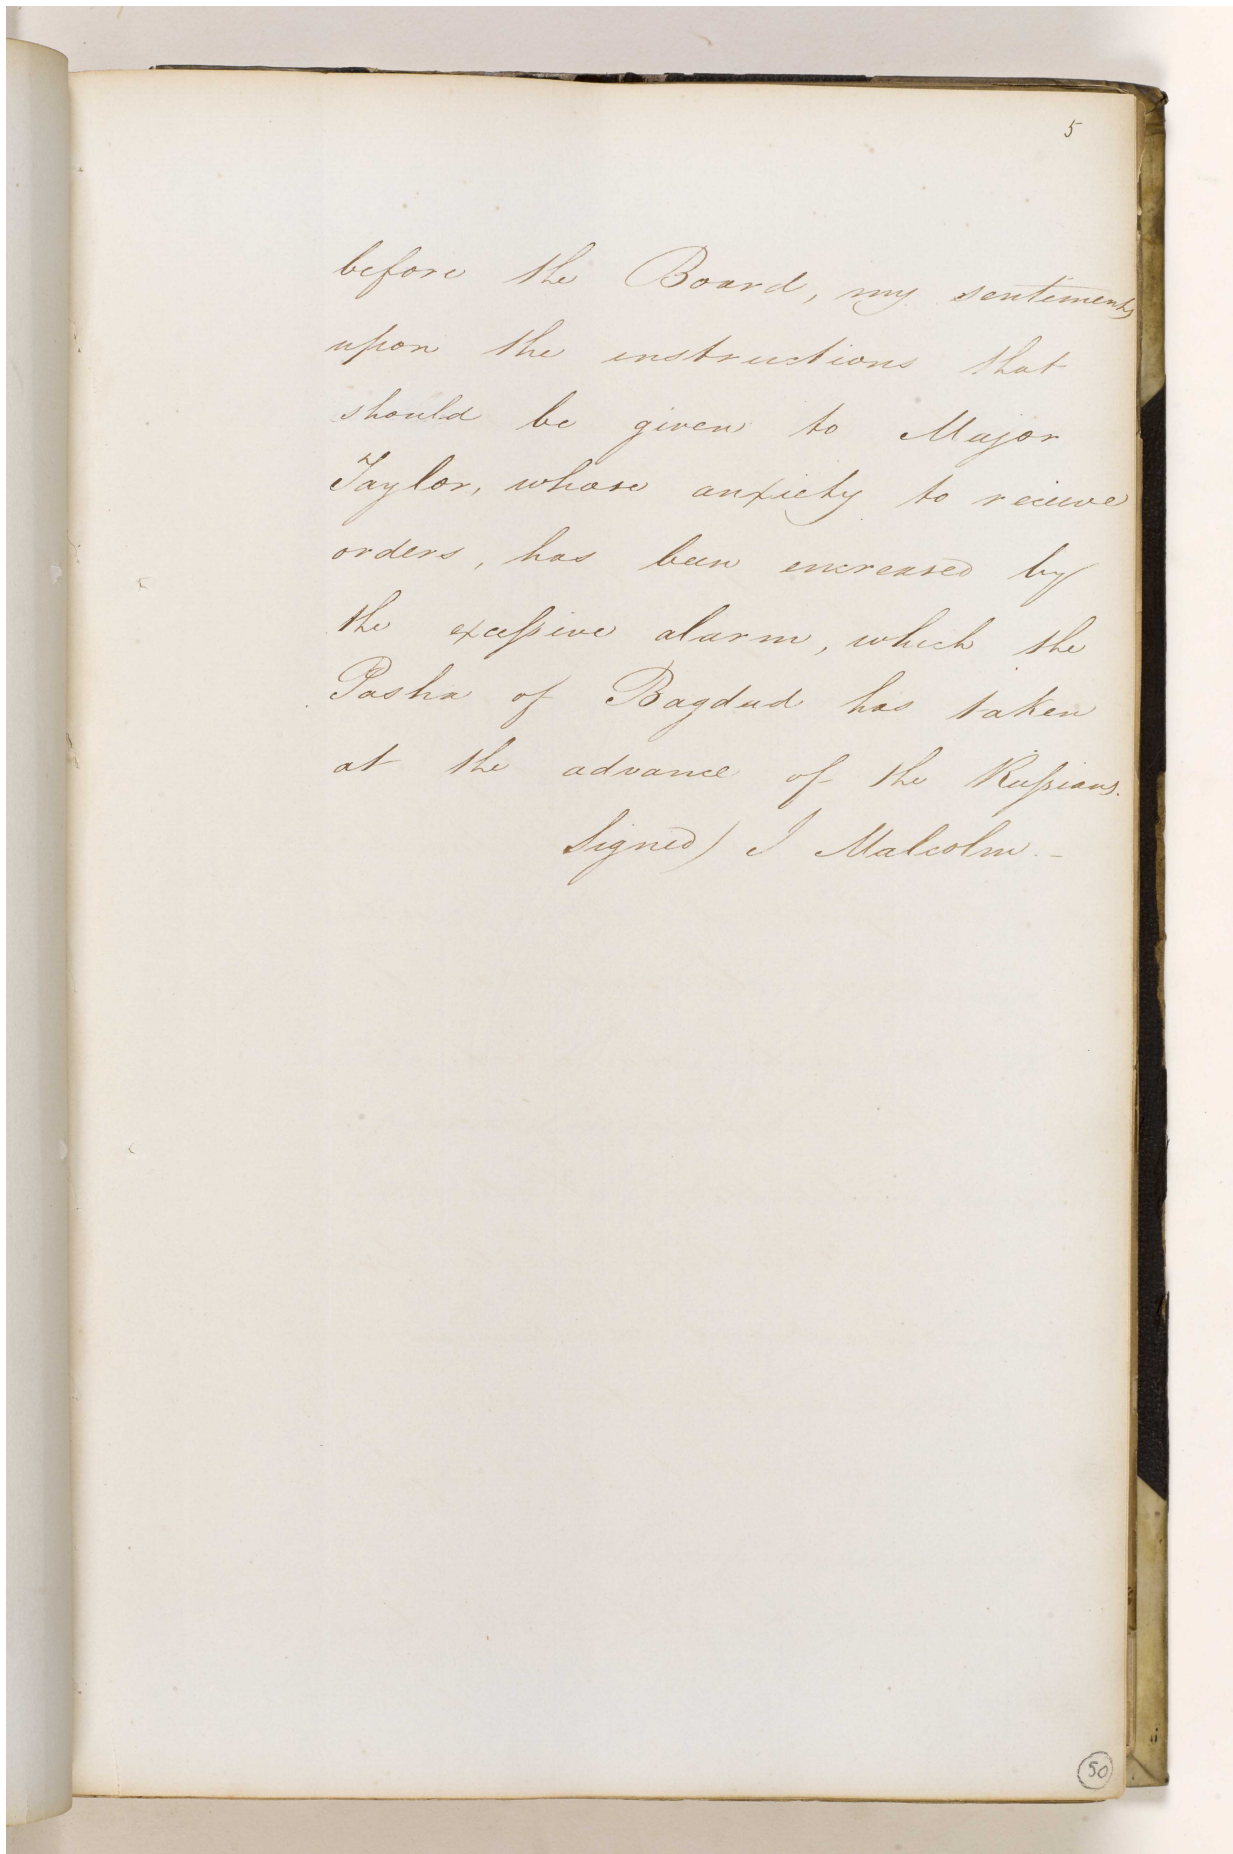 5
before the Board, my sentiments
upon the instructions that
should be given to Major
Taylor, whose anxiety to receive
orders, has been encreased by
the excessive alarm, which the
Pasha of Bagdad has taken
at the advance of the Russians.
Signed) J Malcolm. –
50